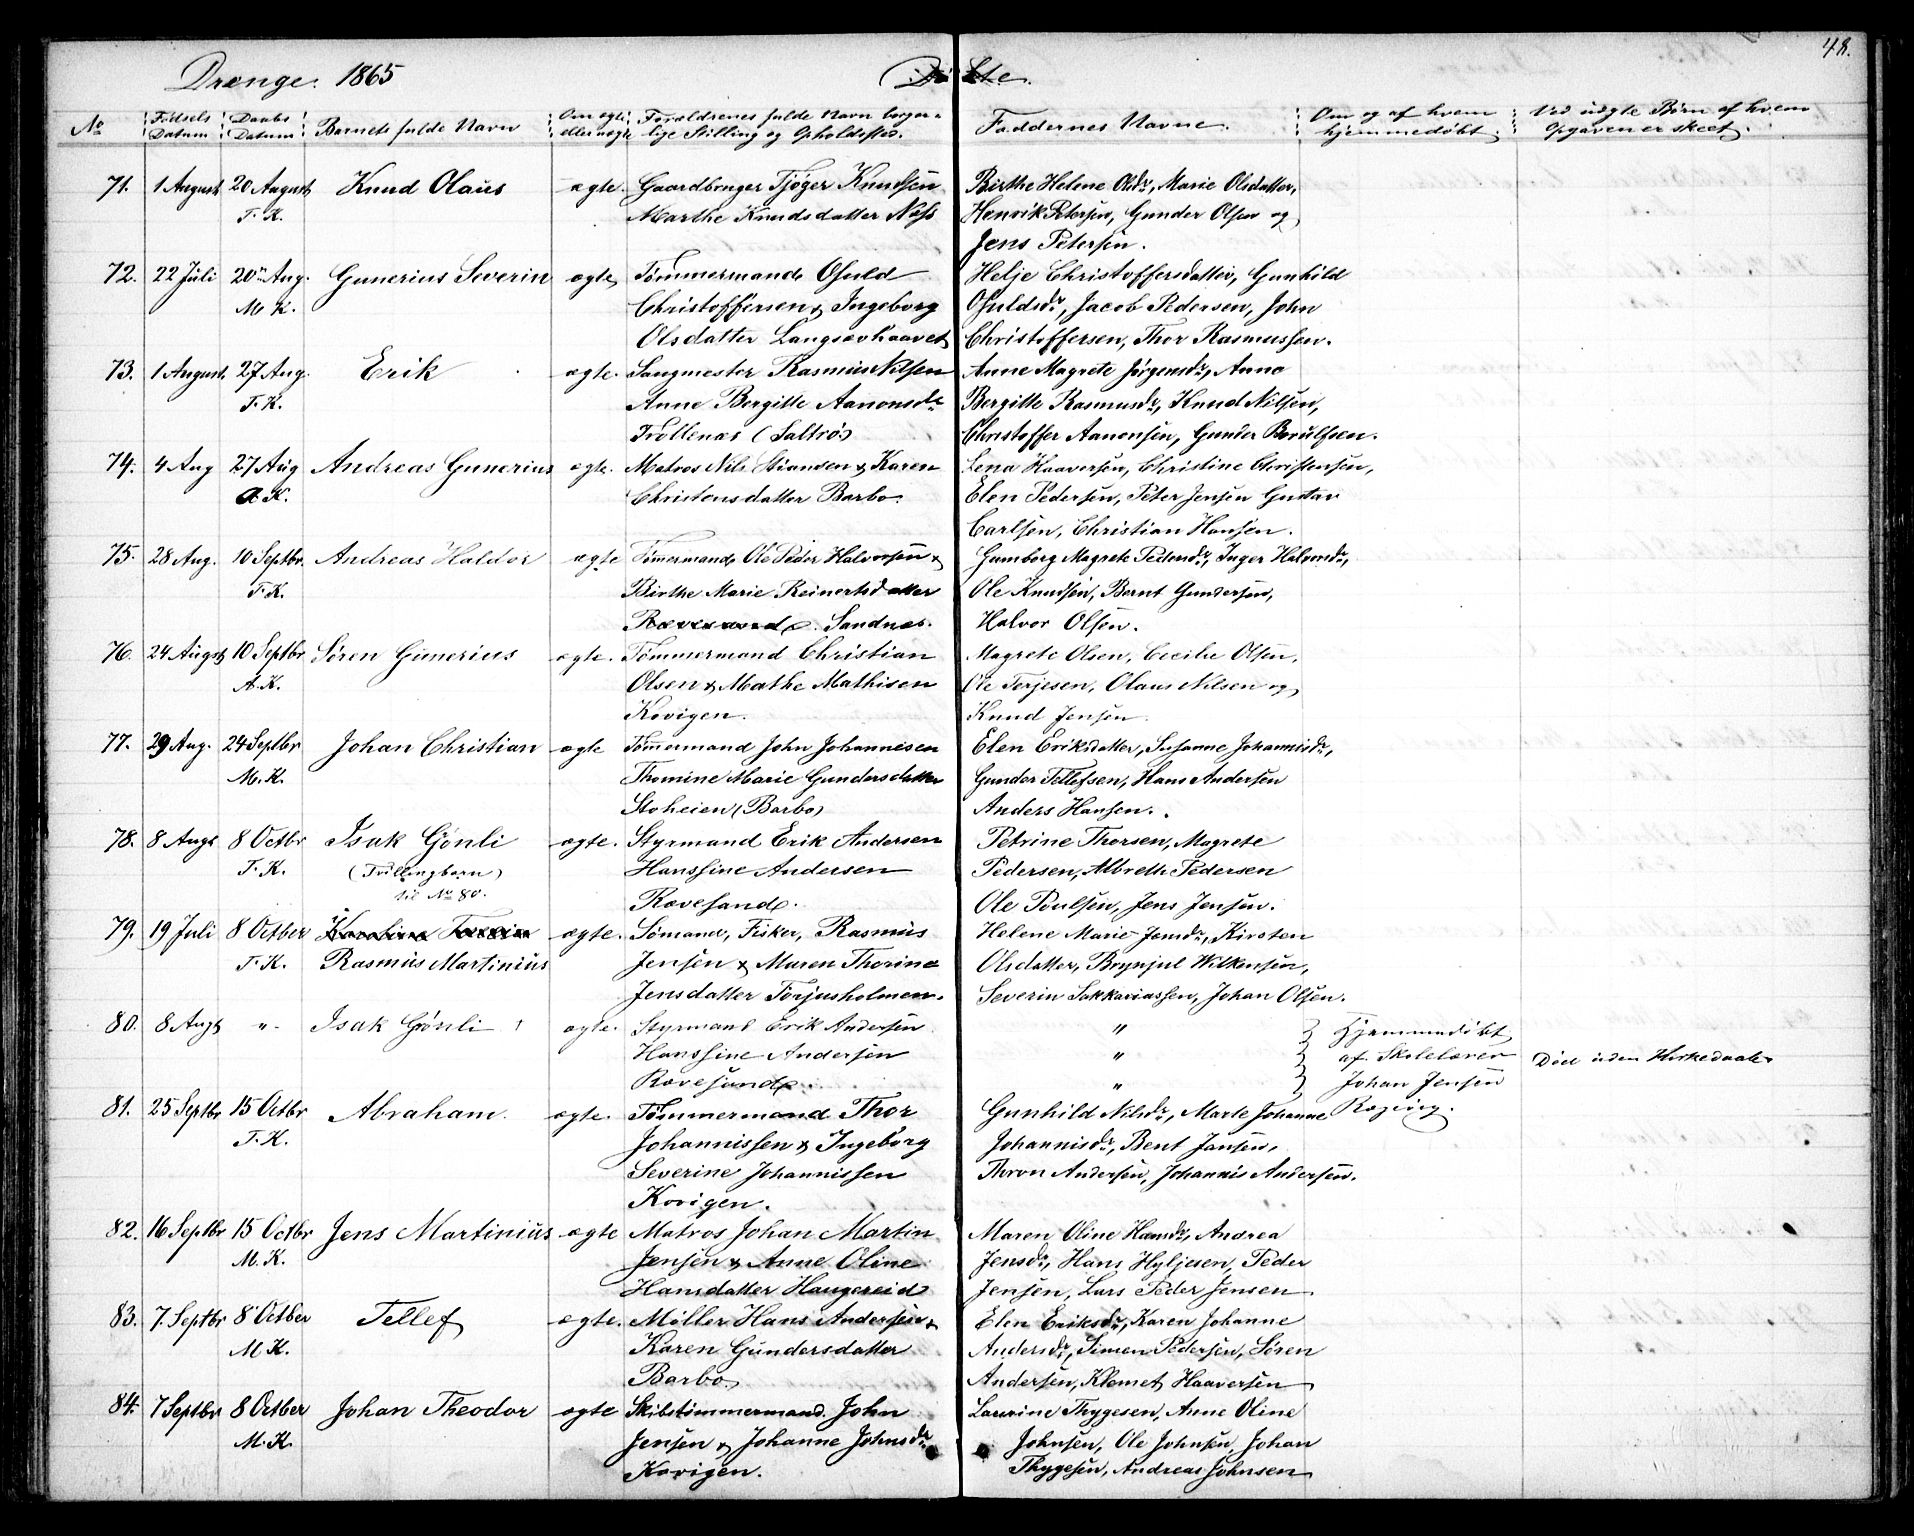 48.
Drenge. 1865 Døbte.
No Fødsels Datum Daabs Datum Barnets fulde Navn Om ægte eller uægte Forældrenes fulde Navn borger-lige Stilling og Opholdssted. Faddernes Navne. Om og af hvem hjemmedøbt Ved uægte Børn af hvem Opgaven er skeet.
71. 1 August 20 August Knud Olaus ægte. Gaardbruger Tjøger Knudsen Birthe Helene Olsdr, Marie Olsdatter,
T. K. Marthe Knudsdatter Næss Henrik Petersen, Gunder Olsen og
Jens Petersen.
72. 22 Juli 20 Aug. Gunerius Severin ægte Tømmermand Osuld Helje Christoffersdatter, Gunhild
M. K. Christoffersen & Ingeborg Osuldsdr, Jacob Pedersen, John
Olsdatter Langsævhaavet Christoffersen, Thor Rasmussen.
73. 1 August. 27 Aug. Erik ægte. Saugmester Rasmus Nilsen Anne Magrete Jørgensdr, Anna
T. K. Anne Bergitte Aanonsdr Bergitte Rasmusdr, Knud Nilsen,
Trollenæs (Saltrø) Christoffer Aanonsen, Gunder Borulfsen.
74. 4 Aug 27 Aug Andreas Gunerius ægte. Matros Nils Stiansen & Karen Lena Haaversen, Christine Christensen,
A. K. Christensdatter Barbo. Elen Pedersen, Peter Jensen Gustav
Carlsen, Christian Hansen.
75. 28 Aug. 10 Septbr. Andreas Haldor ægte Tømermand Ole Peder Halvorsen & Gumborg Magrete Pedersdr, Inger Halvorsdr,
T. K. Birthe Marie Reinertsdatter Ole Knudsen, Bernt Gundersen,
Rævesand. Sandnæs. Halvor Olsen.
76. 24 August 10 Septbr Søren Gunerius ægte. Tømmermand Christian Magrete Olsen, Cecilie Olsen,
A. K. Olsen & Mathe Mathisen Ole Terjesen, Olaus Nilsen og
Kovigen. Knud Jensen.
77. 29 Aug. 24 Septbr Johan Christian ægte Tømermand John Johannesen Elen Eriksdatter, Susanne Johannisdr,
M. K. Thomine Marie Gundersdatter Gunder Tellefsen, Hans Andersen
Stoheien (Barbo) Anders Hansen.
78. 8 Augs 8 Octbr Isak Gønli ægte. Styrmand Erik Andersen Petrine Thorsen, Magrete
T. K. (Tvillingbarn) Hanssine Andersen Pedersen, Albreth Pedersen
til No 80. Rævesand. Ole Poulsen, Jens Jensen.
79. 19 Juli 8 Octber Karoline ægte. Sømand, Fisker, Rasmus Helene Marie Jensdr, Kirsten
T. K. Rasmus Martinius Jensen & Maren Thorine Olsdatter, Brynjul Wilkensen,
Jensdatter Torjusholmen. Severin Sakkariassen, Johan Olsen.
80. 8 Augs " Isak Gønli ægte. Styrmand Erik Andersen " Hjemmedøbt
Hanssine Andersen " af Skolelærer Død uden Kirkedaab.
Rævesand. " Johan Jensen
81. 25 Septbr 15 Octbr Abraham. ægte. Tømmermand Thor Gunhild Nilsdr, Marte Johanne
T. K. Johannissen & Ingeborg Johannisdr, Bent Jansen,
Severine Johannissen Thron Andersen, Johannis Andersen.
Kovigen.
82. 16 Septbr 15 Octbr Jens Martinius ægte Matros Johan Martin Maren Oline Hansdr, Andrea
M. K. Jensen & Anne Oline Jensdr, Hans Hyljesen, Peder
Hansdatter Haugereid Jensen, Lars Peder Jensen.
83. 7. Septbr 8 Octber Tellef ægte. Møller Hans Andersen & Elen Eriksdr, Karen Johanne
M. K. Karen Gundersdatter Andersdr, Simen Pedersen, Søren
Barbo Andersen, Klemet Haaversen
84. 7 Septbr 8 Octber Johan Theodor ægte Skibstømmermand. John Laurine Thygesen, Anne Oline
M. K. Jensen & Johanne Johnsdr Johnsen, Ole Johnsen, Johan
Kovigen. Thygesen, Andreas Johnsen